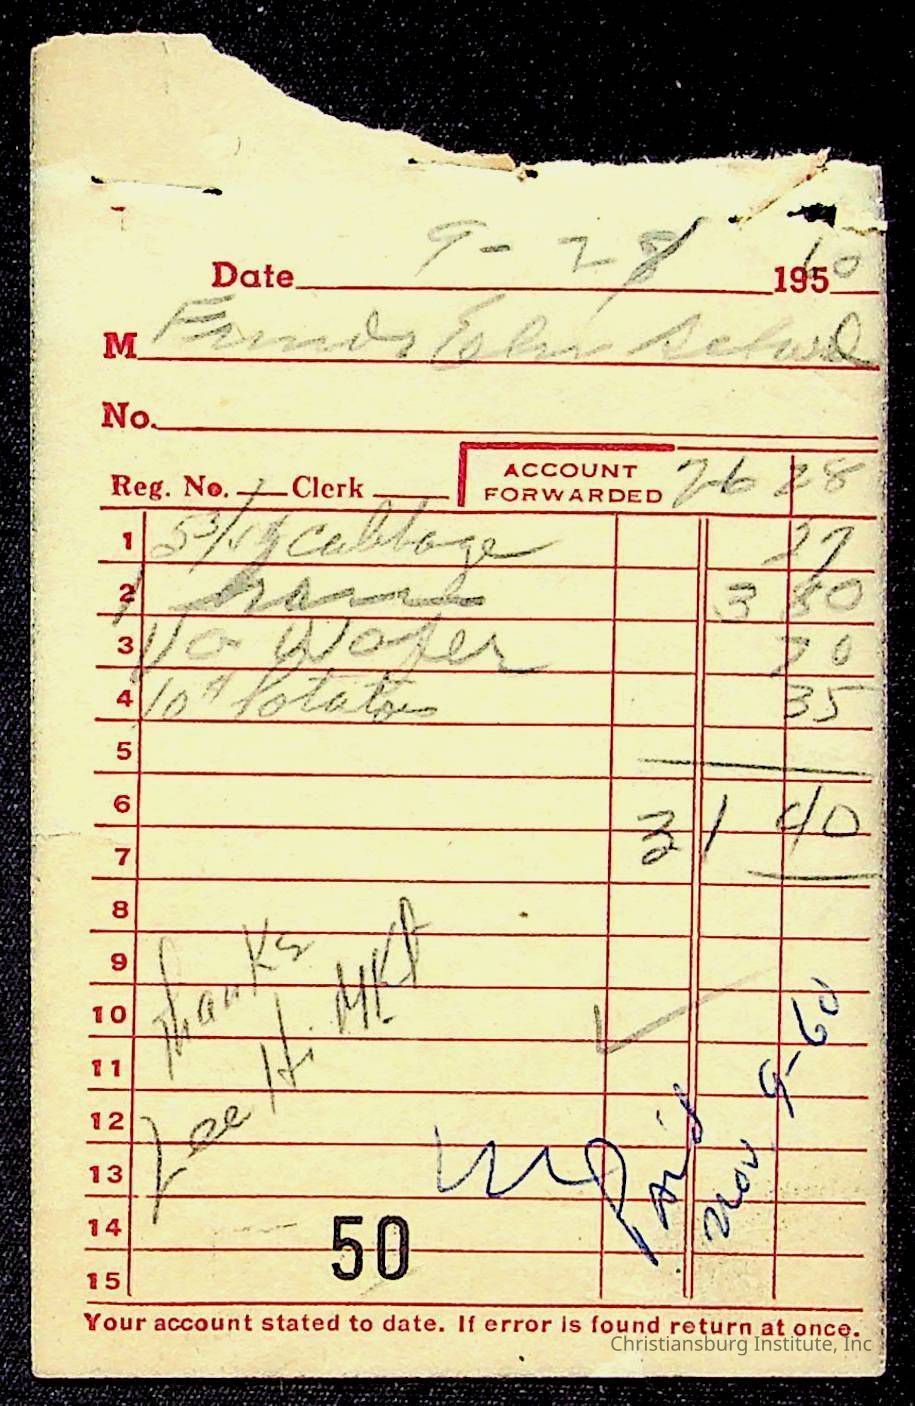 9-28
Date 195 60
M School
No.
Reg. No. Clerk
ACCOUNT
FORWARDED 26 28
1 cabbage 27
2 3 80
3 70
4 10# Potatoes 35
5
6 31 40
7
8
9
10
11
12
13
14
15
Thanks
Lee Hi MKT
Paid
Nov 9-60
50
Your account stated to date. If error is found return at once.
Christiansburg Institute, Inc